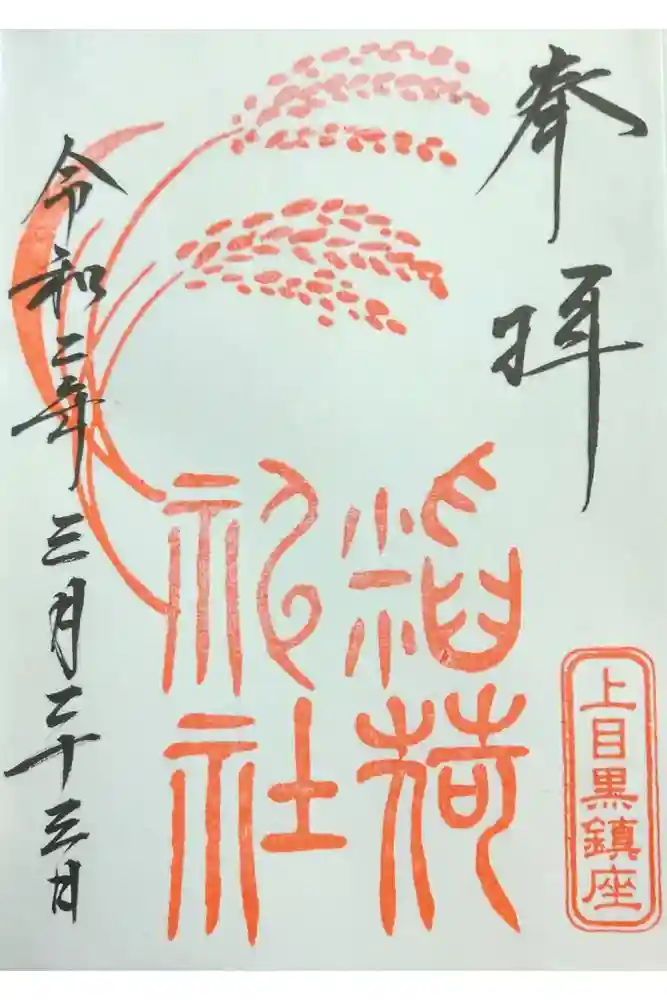 奉拝
上目黒鎮座
稲荷
神社
令和二年三月二十三日